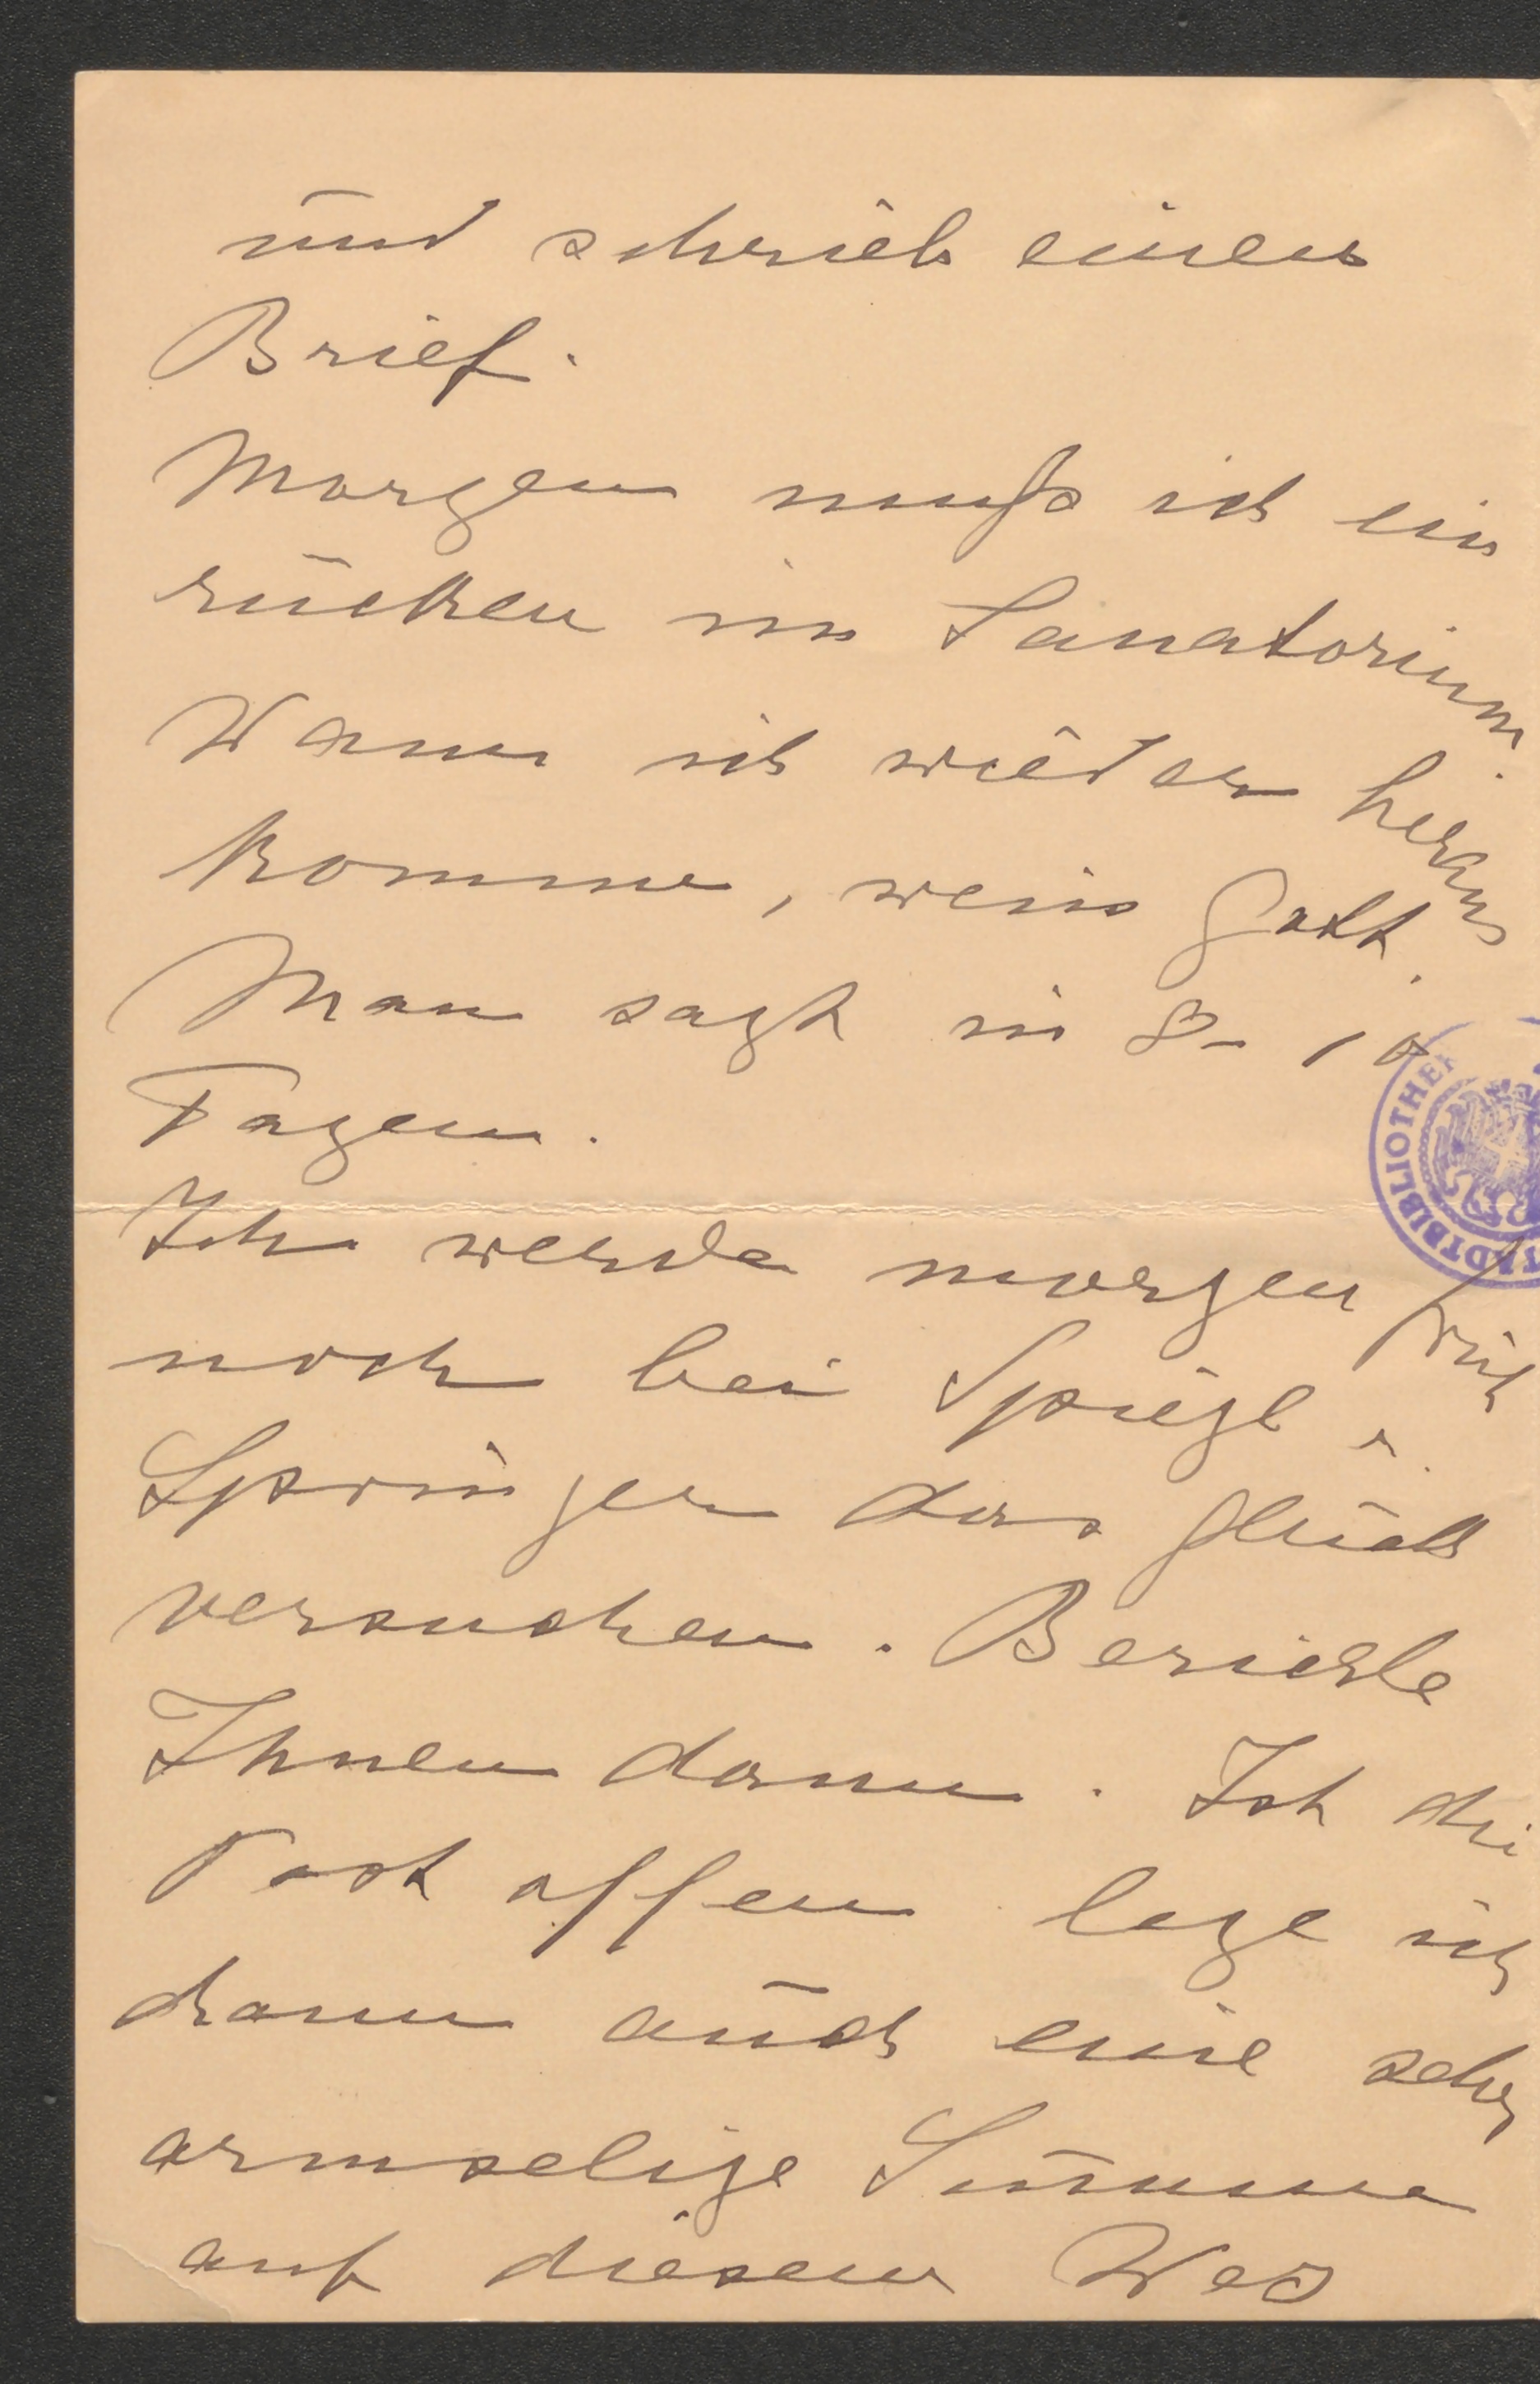 und schrieb einen
Brief.
Morgen muß ich ein
rücken im Sanatorium.
Wann ich wieder heraus
komme, weiss Gott.
Man sagt in 8-10
Tagen.
STADTBIBLIOTHEK
Ich werde morgen früh
noch bei Spiegl u.
Springer das Glück
versuchen. Berichte
Ihnen dann. Ist die
Post offen lege ich
dann auch eine sehr
armselige Summe
auf diesem Weg